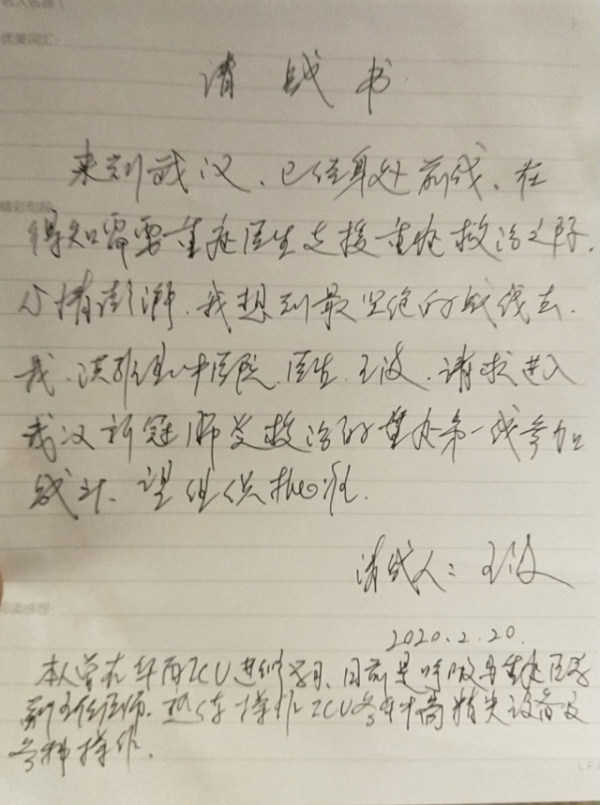 优美词汇:
请战书
来到武汉,已经身处前线,在
得知需要重症医生支援重症救治之际,
心情澎湃,我想到最坚强的战线去.
我,洪雅县中医院,医生,王波,请求进入
武汉新冠肺炎救治的重症第一线参加
战斗,望组织批准.
请战人:王波
2020.2.20.
本人曾在华西ICU进修学习,目前是呼吸与重症医学
副主任医师,熟练操作ICU各种高精尖设备及
各种操作.